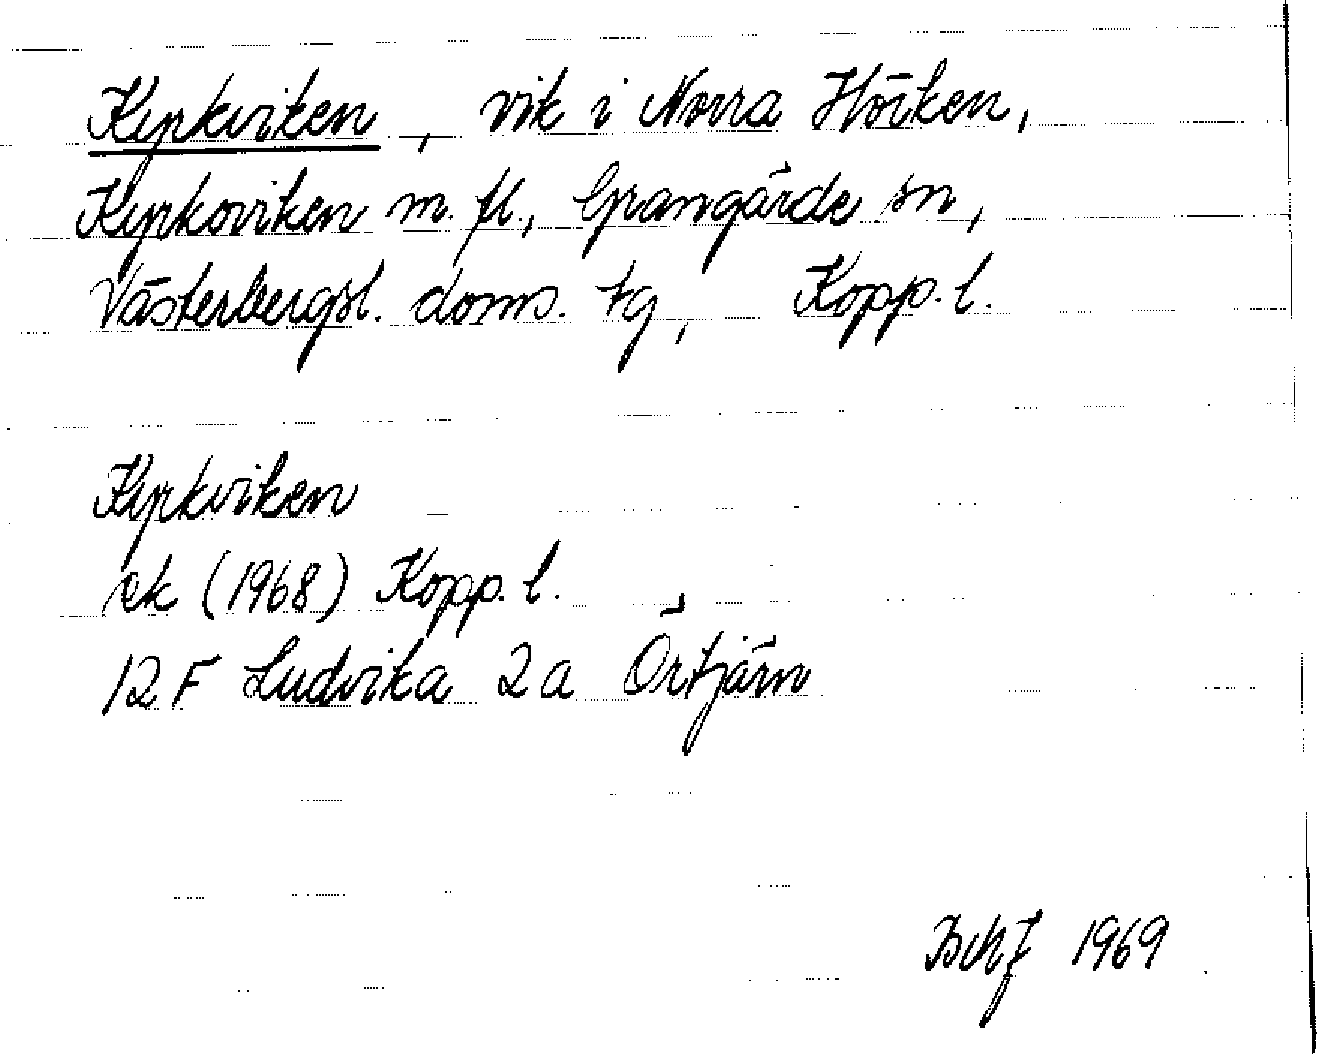 Kyrkviken, vik i Norra Hörken,
Kyrkoviken m. fl., Grangärde sn,
Västerbergsl. doms. tg, Kopp. l.
Kyrkviken
ek (1968) Kopp. l.
12 F Ludvika 2 a Örtjärn
1969